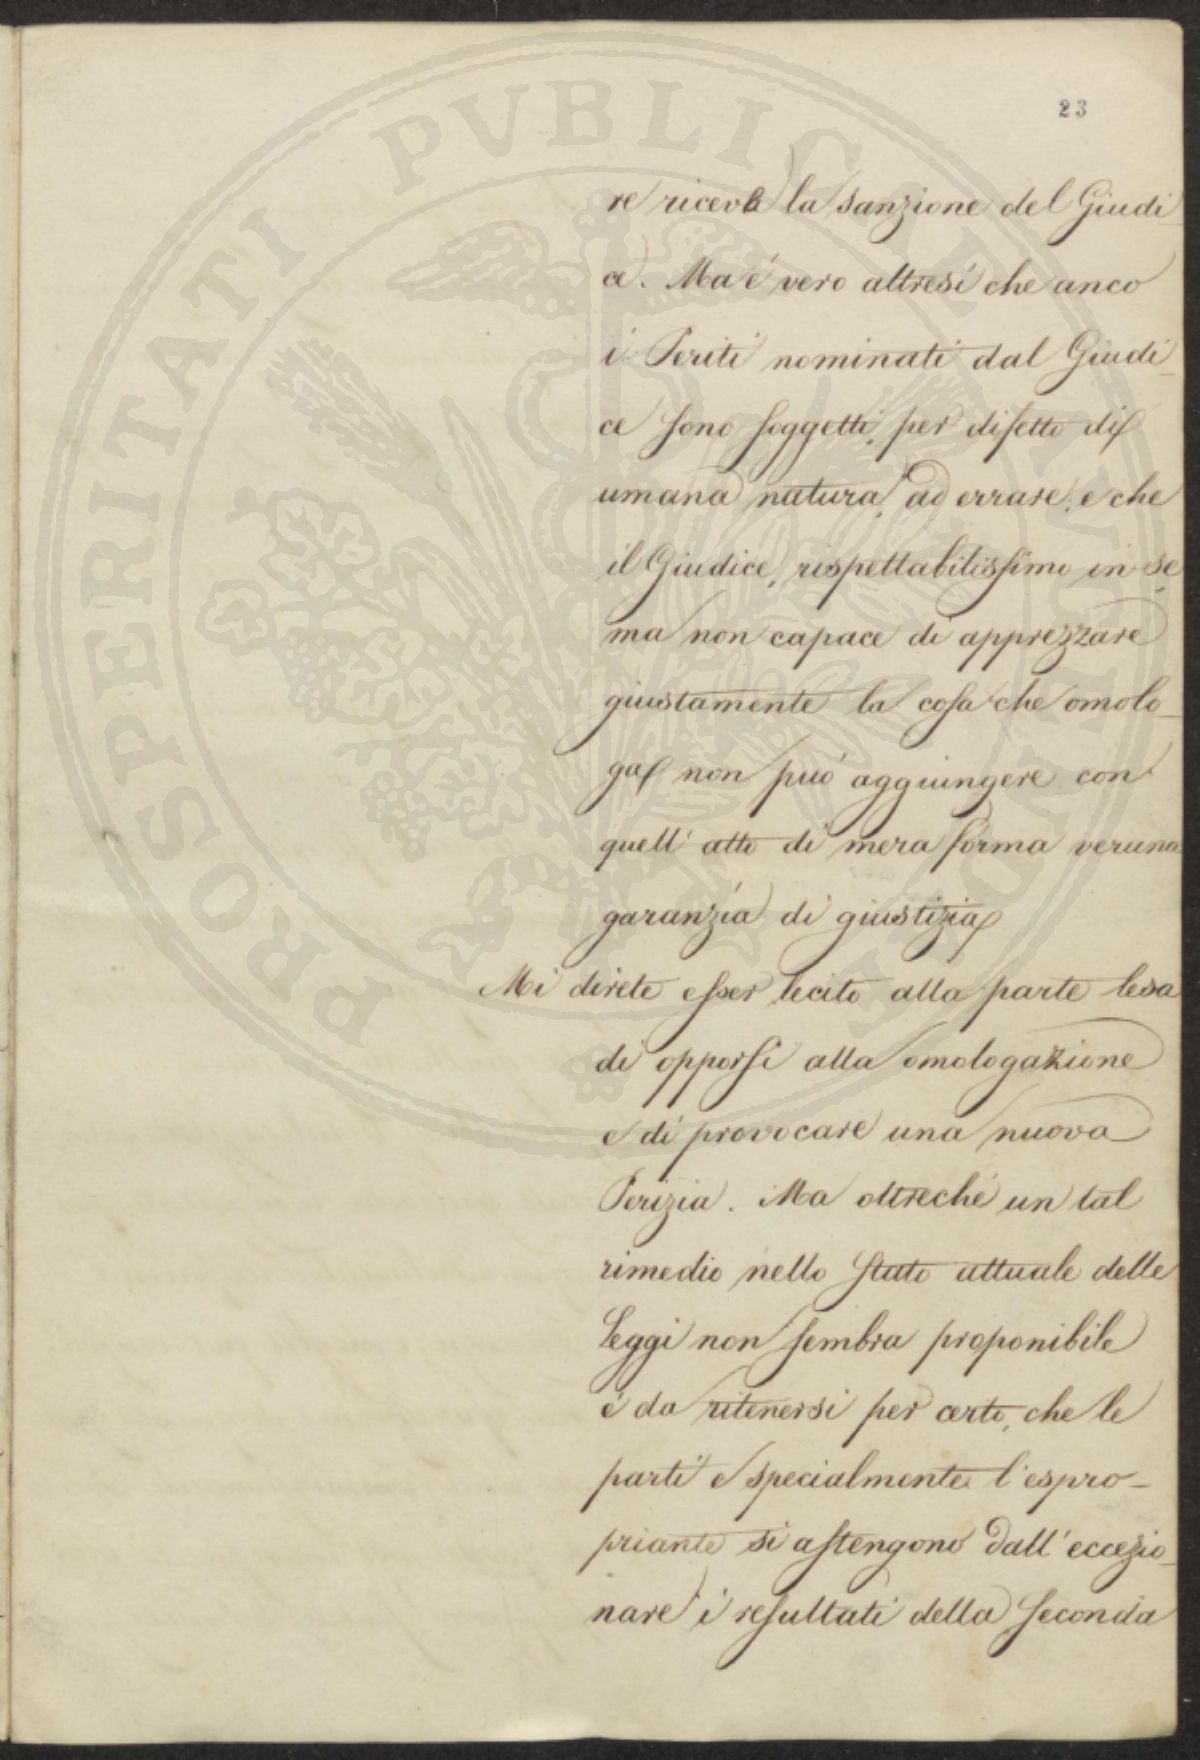 PROSPERITATI PVBLICAE
23
re riceve la sanzione del Giudi
ce. Ma é vero altresí che anco
i Periti nominati dal Giudi_
ce sono soggetti, per difetto di
umana natura, ad errare, e che
il Giudice, rispettabilissimo in se,
ma non capace di apprezzare
giustamente la cosa che omolo_
ga, non puó aggiungere con
quell'atto di mera forma veruna
garanzía di giustizia
Mi direte esser lecito alla parte lesa
di opporsi alla omologazione
e di provocare una nuova
Perizia. Ma oltreché un tal
rimedio nello Stato attuale delle
Leggi non sembra proponibile
é da ritenersi per certo, che le
parti e specialmente l'espro-
priante si astengono dall'eccezio_
nare i resultati della seconda